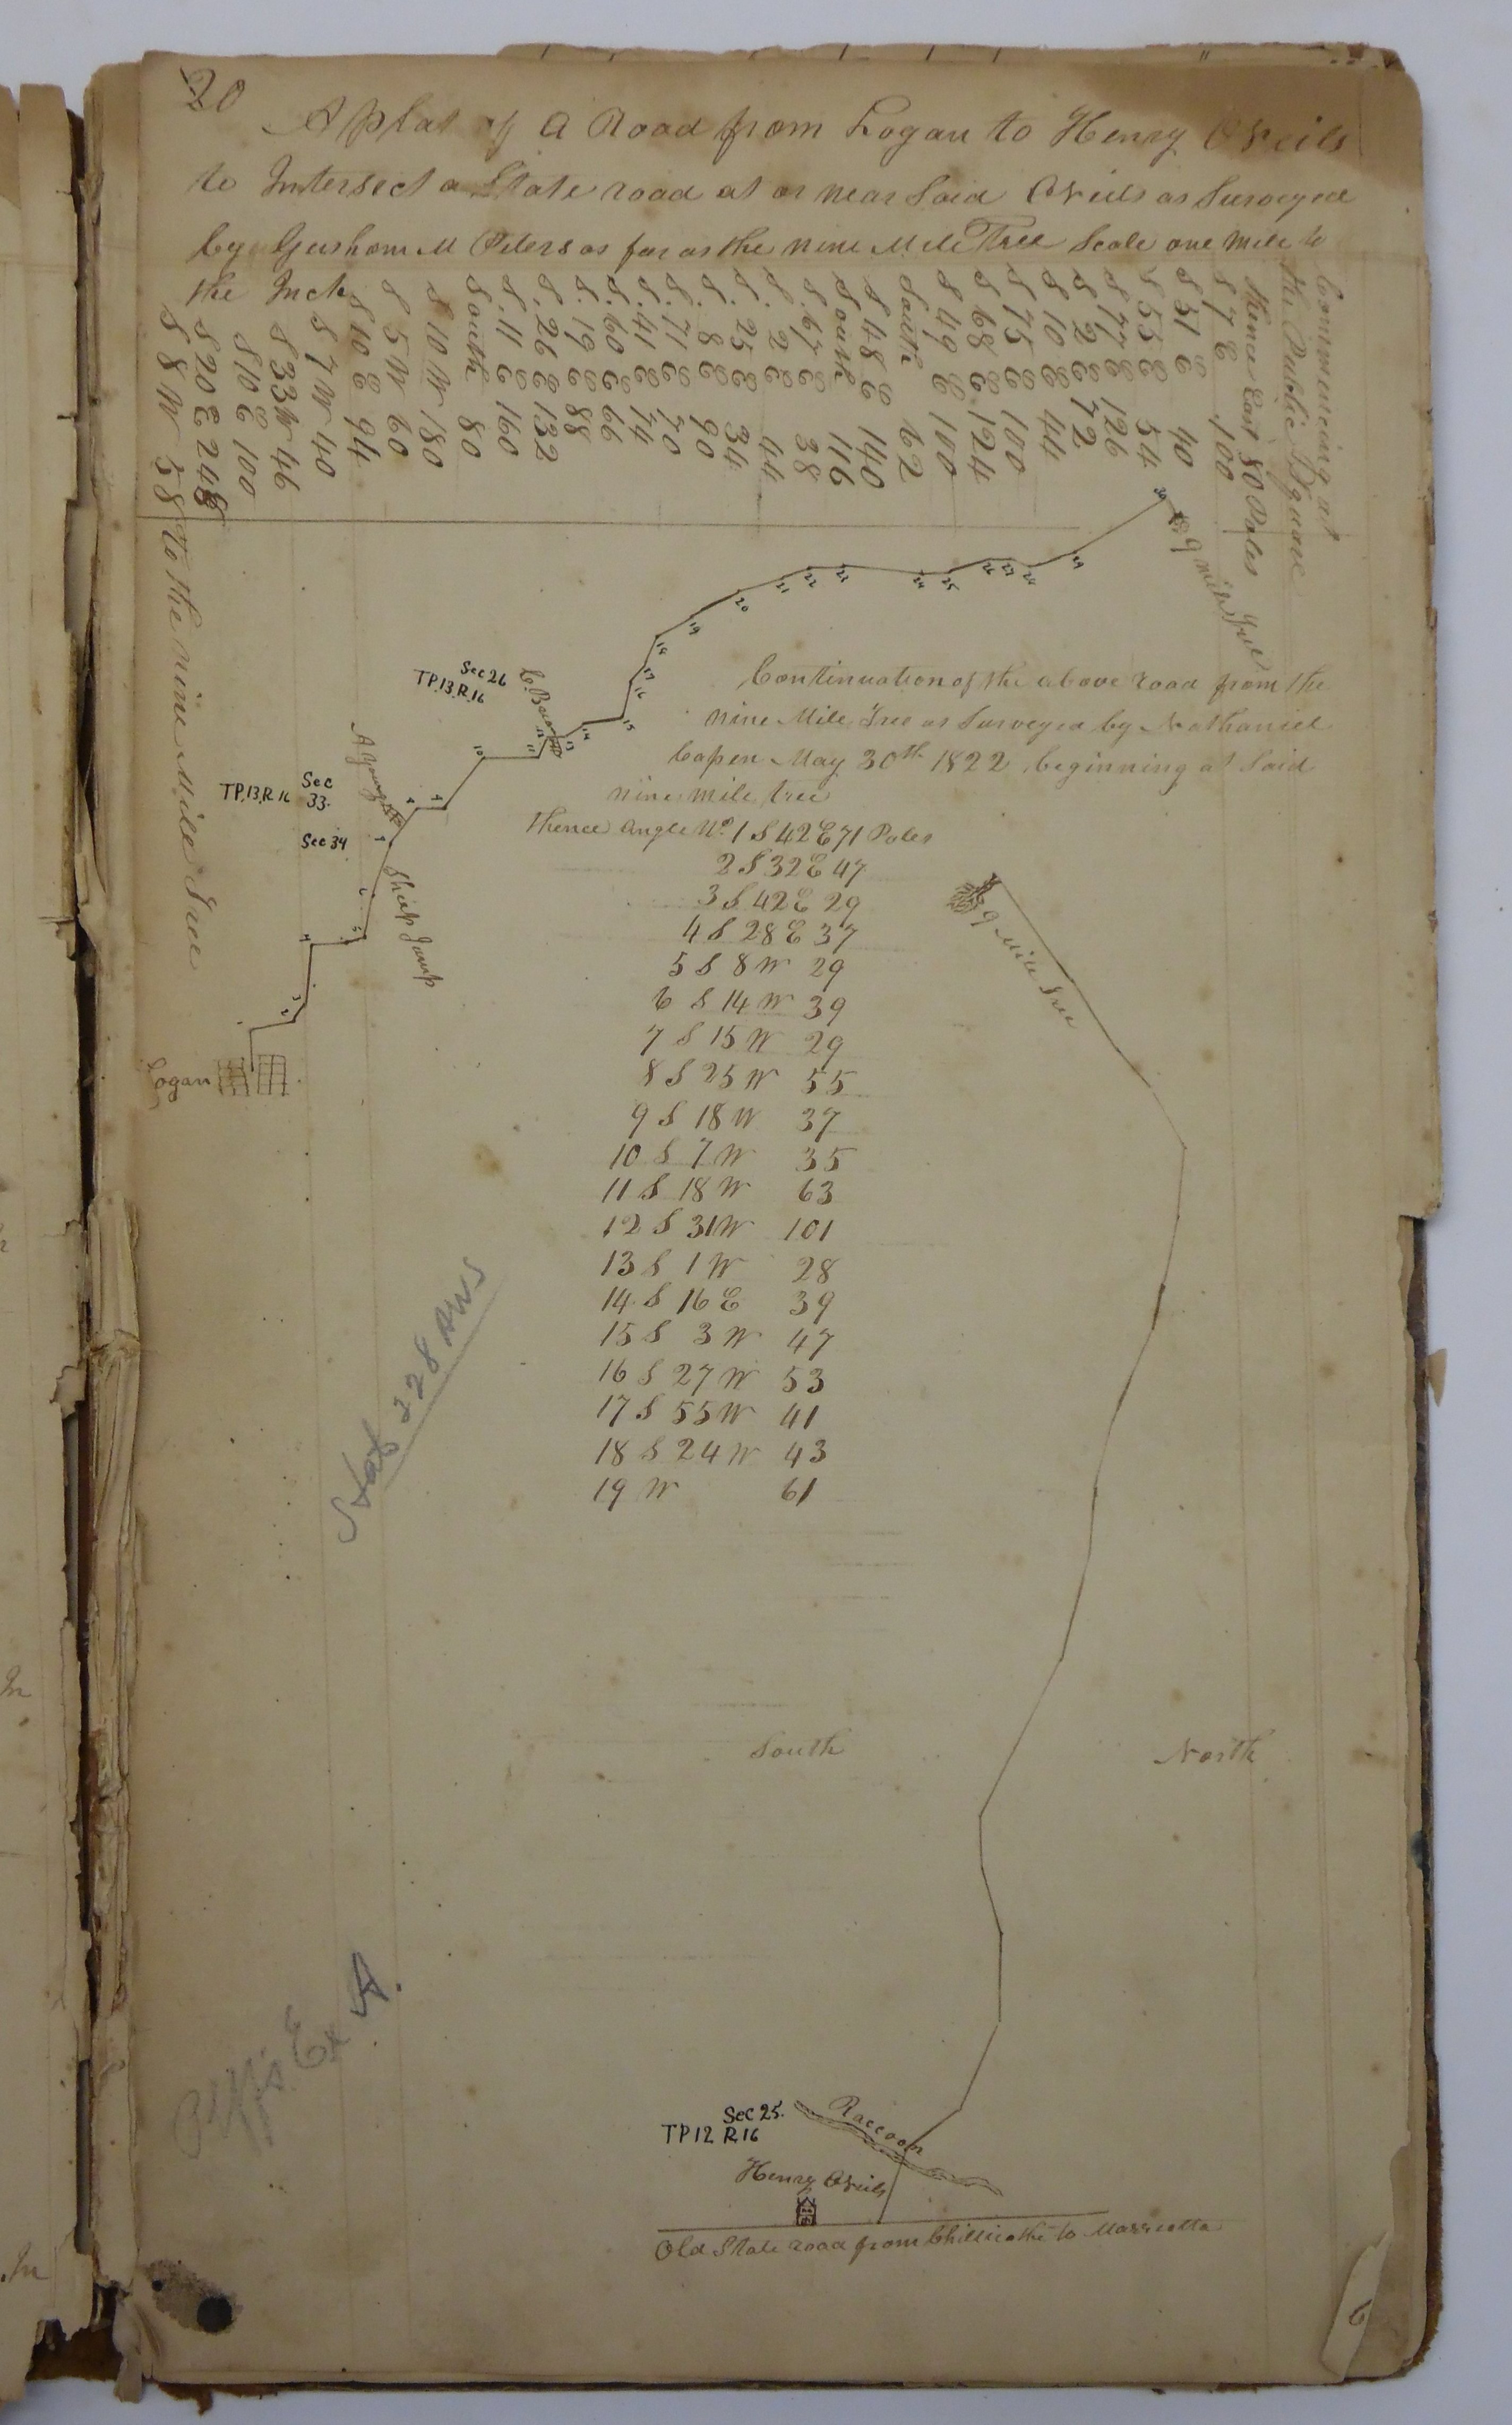 20
A plat of a Road from Logan to Henry ONeils
to Intersect a State road at or near Said ONeils as Surveyed
by Gershom M Peters as far as the nine Mile Tree Scale one mile to
the Inch
Commencing at
the Public Square
thence East 80 Poles
S 7 E 100
S 31 E 40
S 55 E 54
S 77 E 126
S 2 E 72
S 10 E 44
S 75 E 100
S 68 E 124
S 49 E 100
South 62
S 48 E 140
South 116
S. 67 E 38
S. 2 E 44
S. 25 E 34
S. 8 E 90
S. 71 E 70
S. 41 E 74
S. 60 E 66
S. 19 E 88
S. 26 E 132
S. 11 E 160
South 80
S 10 W 180
S 5 W 60
S 10 E 94
S 7 W 40
S 33 W 46
S 10 E 100
S 20 E 248
S 8 W 58 To the nine Mile Tree
9 mile Tree
Sec 26
TP.13.R.16
TP.13.R.16 Sec
33.
Sec 34
A Young
Sheep Jump
Logan
Continuation of the above road from the
nine Mile Tree as Surveyed by Nathaniel
Capen May 30th 1822 beginning at Said
nine mile tree
thence Angle No. 1 S 42 E 71 Poles
2 S 32 E 47
3 S 42 E 29
4 S 28 E 37
5 S 8 W 29
6 S 14 W 39
7 S 15 W 29
8 S 25 W 55
9 S 18 W 37
10 S 7 W 35
11 S 18 W 63
12 S 31 W 101
13 S 1 W 28
14 S 16 E 39
15 S 3 W 47
16 S 27 W 53
17 S 55 W 41
18 S 24 W 43
19 W 61
9 Mile Tree
South North
Sec 25.
TP 12 R 16
Raccoon
Henry ONeils
Old State road from Chillicothe to Marrietta
Plff's Ex A.
6